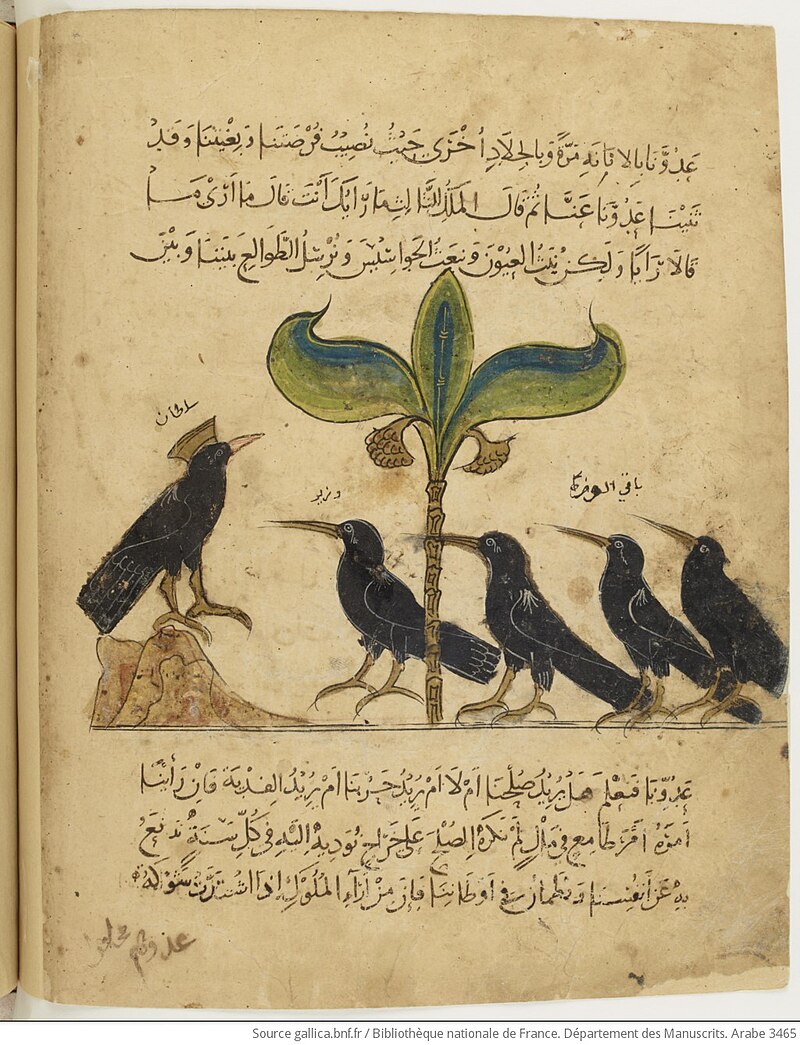 عدونا بالاناة مرة وبالجلاد اخرى حيث نصيب فرصتنا وبغيتنا وقد
ثنينا عدونا عنا ثم قال الملك للثالث ما رايك انت قال ما ارى ما
قالا رايا ولكن نبث العيون ونبعث الجواسيس ونرسل الطوالع بيننا وبين
سلطان
وزير
باقي الوزرا
عدونا فنعلم هل يريد صلحنا ام لا ام يريد حربنا ام يريد الفدية فان راينا
امره امر طامع في مال لم نكره الصلح على خراج نوديه اليه في كل سنة ندفع
به عن انفسنا ونطمان في اوطاننا فان من اراء الملوك اذا اشتدت شوكة
عدوهم
Source gallica.bnf.fr / Bibliothèque nationale de France. Département des Manuscrits. Arabe 3465